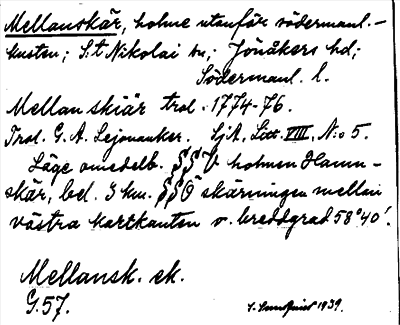 Mellanskär, holme utanför södermanl.-
kusten; S:t Nikolai sn; Jönåkers hd;
Södermanl. l.
Mellanskiär trol. 1774-76.
Trol. G. A. Lejonanker. SjA, Litt VIII, N:o 5.
Läge omedelb. SSV holmen Hamn-
skär, bel. 3 km. SSO skärningen mellan
västra kartkanten o. breddgrad 58°40'.
Mellansk. ek.
G.57.
S. Lundquist 1939.